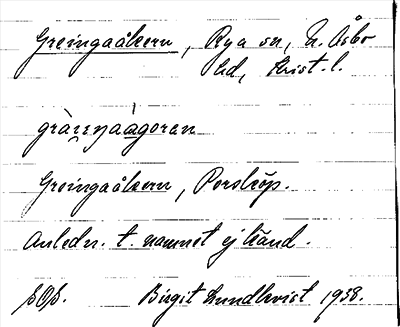 Greingaåkern, Rya sn, N. Åsbo
hd, Krist. l.
gràɪ̯ŋaàgoran
Greingaåkern, Perstorp.
Anledn. t. namnet ej känd.
SOS. Birgit Lundkvist 1938.